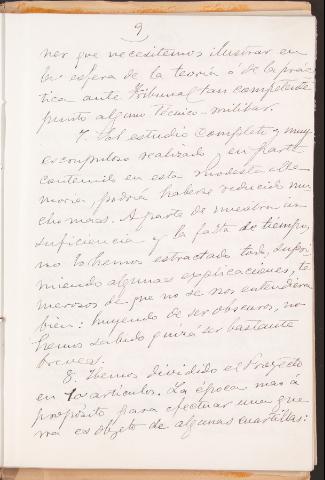 9
ner que necesitemos ilustrar en
la esfera de la teoría ó de la prác-
tica ante Tribunal tan competente
punto alguno técnico-militar.
7. Tal estudio completo y muy
escrupuloso realizado, en parte
contenido en esta modesta Me-
moria, podría haberse reducido mu-
cho mas. Aparte de nuestra in-
suficiencia y la falta de tiempo,
no lo hemos extractado todo, supri-
miendo algunas esplicaciones, te-
merosos de que no se nos entendiera
bien: huyendo de ser obscuros, no
hemos sabido quizá ser bastante
breves.
8. Hemos dividido el Proyecto
en 10 artículos. La época mas á
propósito para efectuar una gue-
rra es objeto de algunas cuartillas: